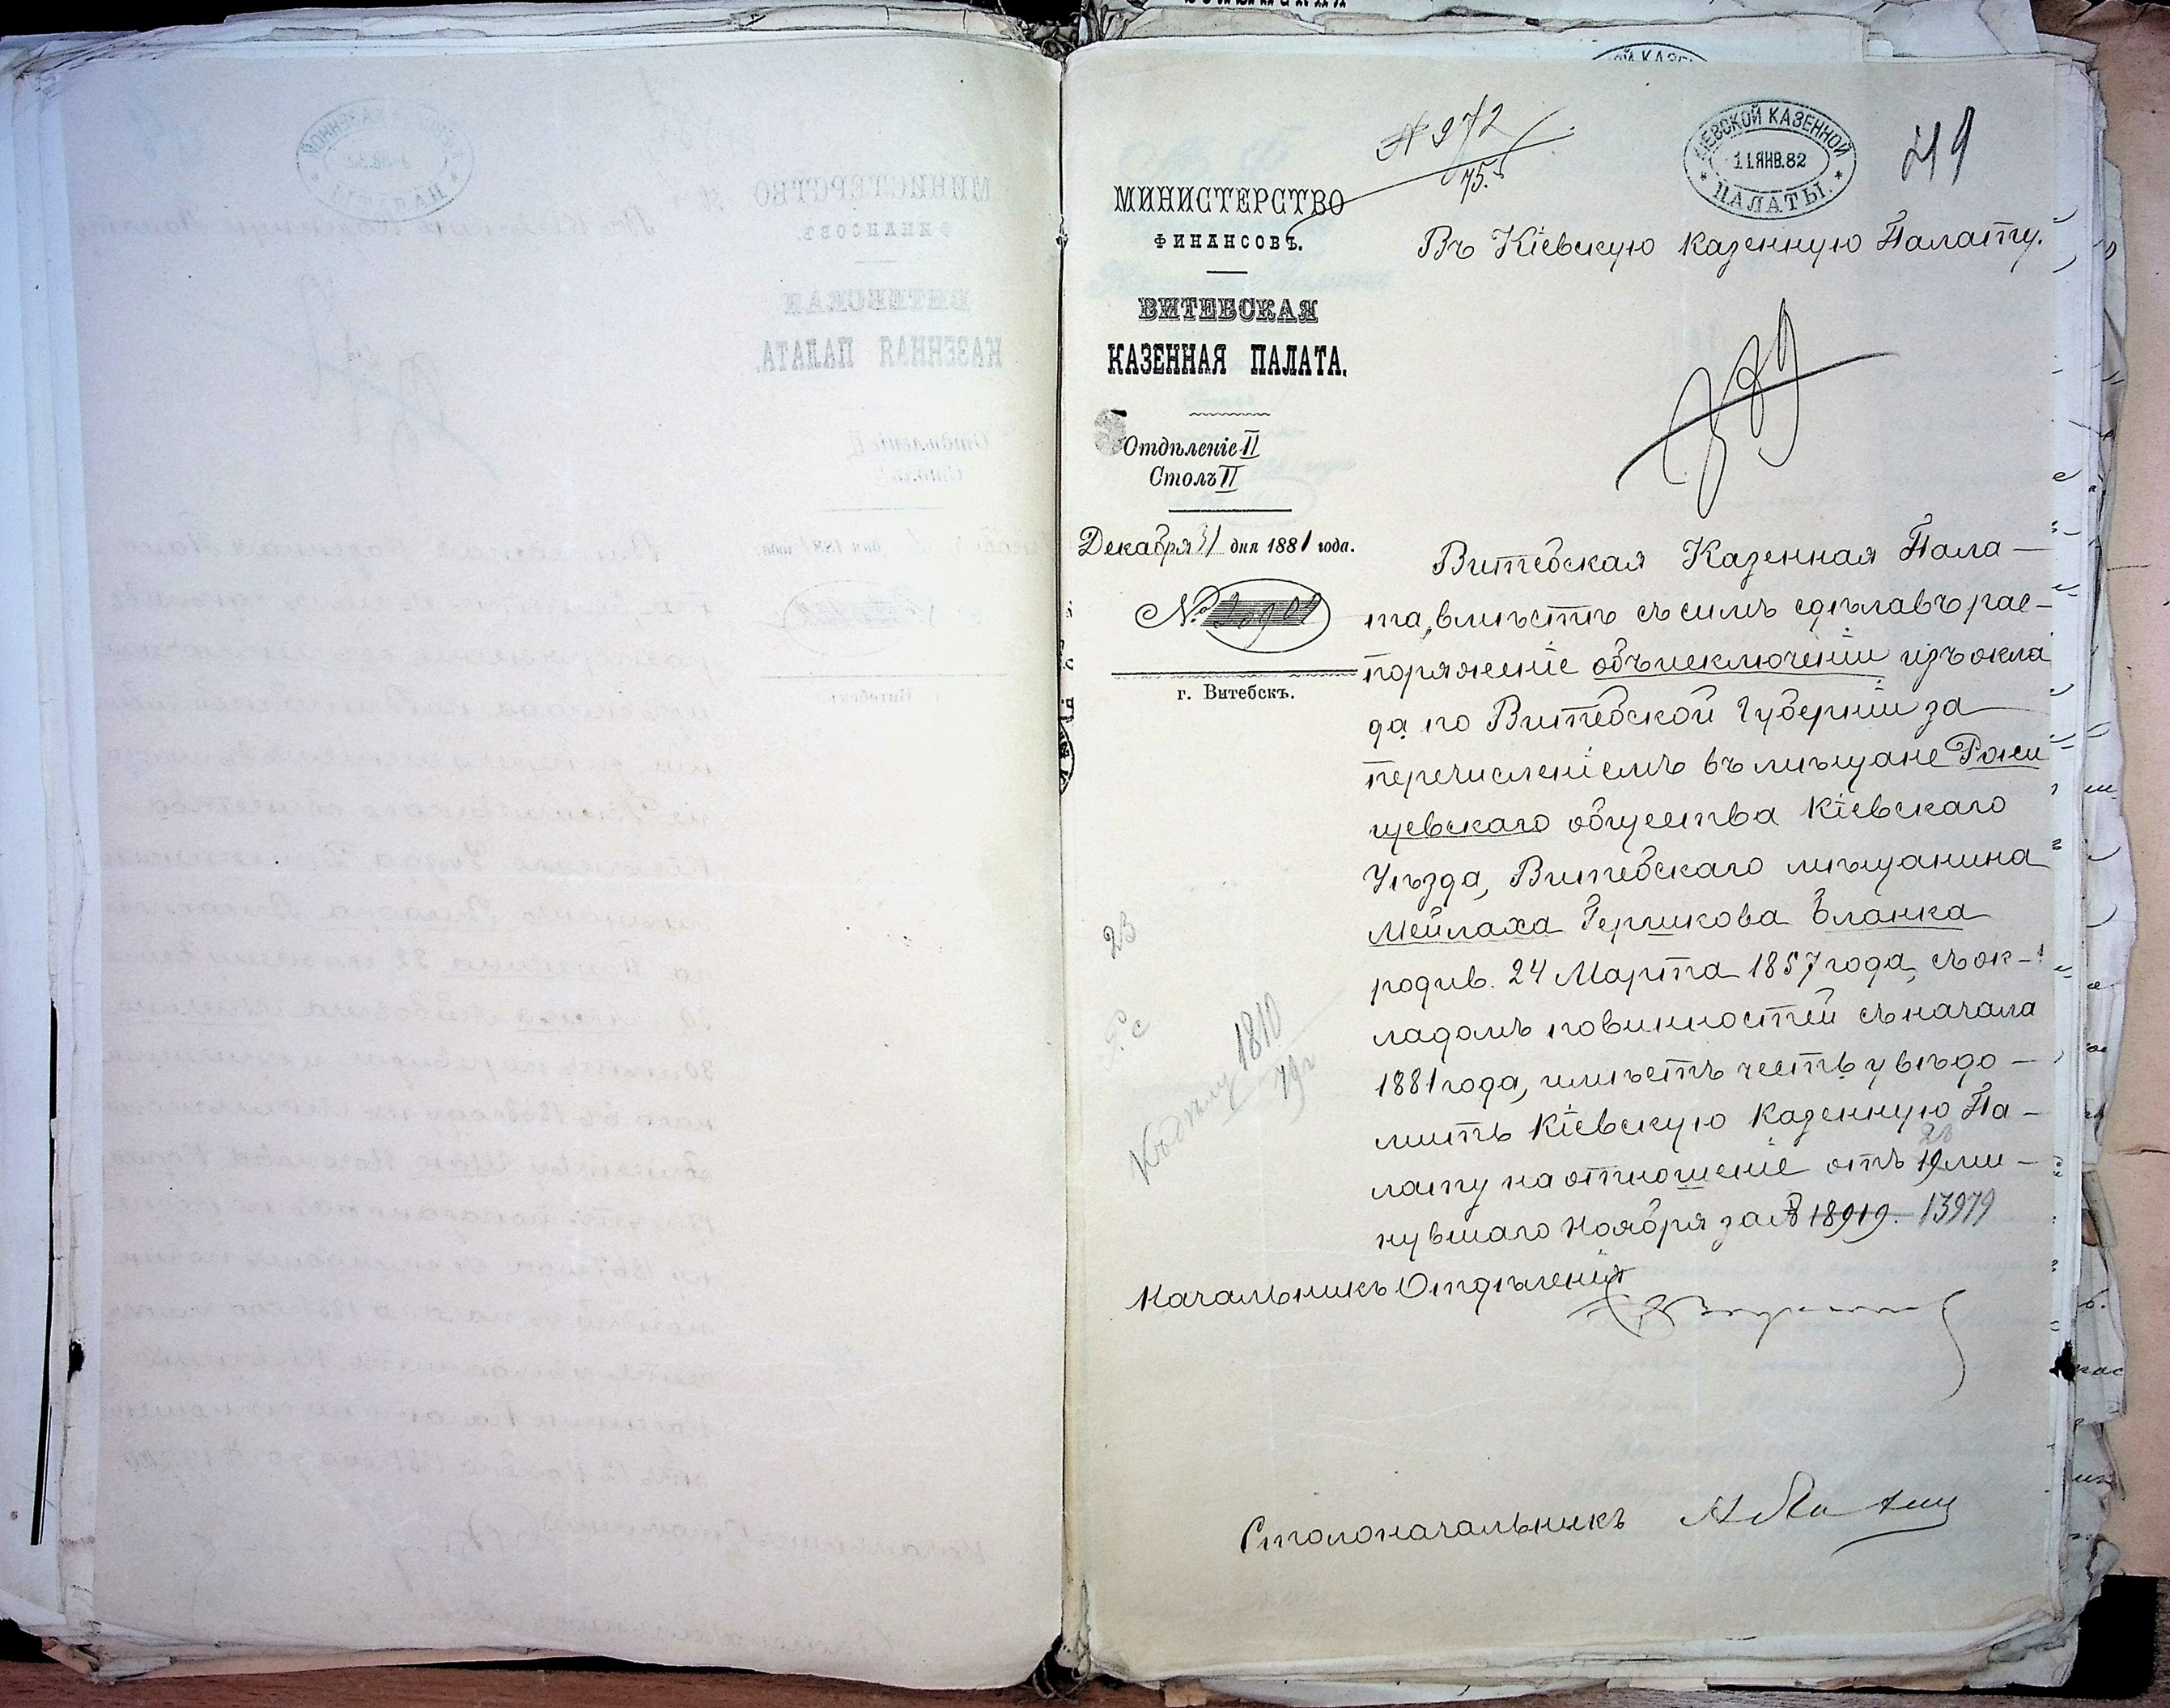 № 972
75.
КІЕВСКОЙ КАЗЕННОЙ
11 ЯНВ. 82
ПАЛАТЫ.
МИНИСТЕРСТВО
ФИНАНСОВЪ.
ВИТЕБСКАЯ
КАЗЕННАЯ ПАЛАТА.
Отдѣленіе II
Столъ II
Декабря 31 дня 1881 года.
№
г. Витебскъ.
Въ Кіевскую Казенную Палату.
Витебская Казенная Пала-
та, вмѣстѣ съ симъ сдѣлавъ рас-
поряженіе объ исключеніи изъ окла
да по Витебской Губерніи за
перечисленіемъ въ мѣщане Рожи
щевскаго общества Кіевскаго
Уѣзда, Витебскаго мѣщанина
Мейлаха Гершкова Бланка
родив. 24 Марта 1857 года, съ ок-
ладомъ повинностей съ начала
1881 года, имѣетъ честь увѣдо-
мить Кіевскую Казенную Па-
лату на отношеніе отъ 19 ми-
нувшаго Ноября за № 18919. 13979
23
Къ дѣлу 1810
79 г
Начальникъ Отдѣленія
Столоначальникъ